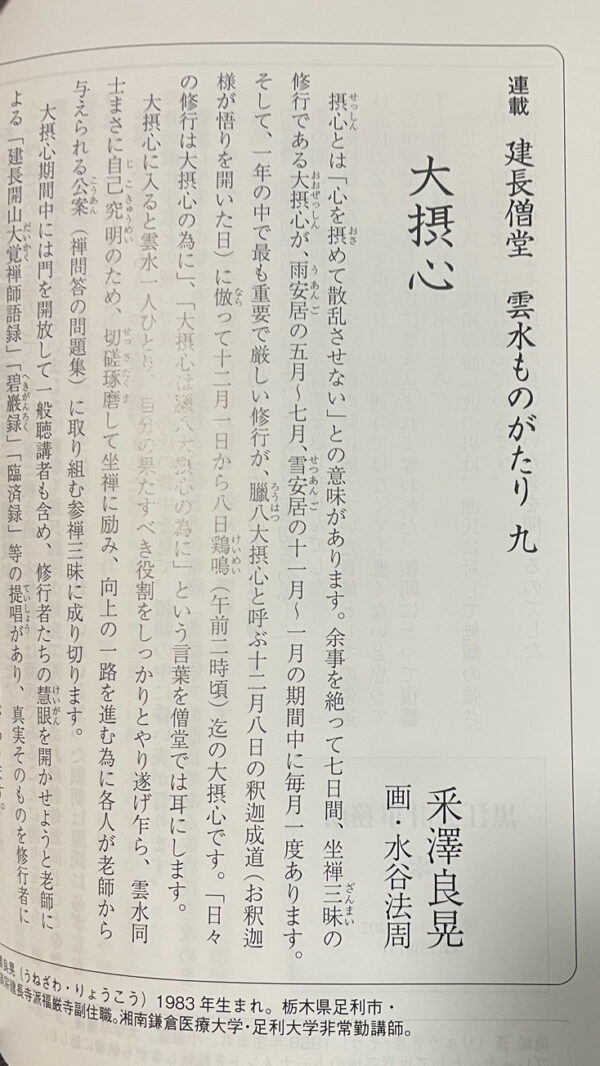 連載 建長僧堂 雲水ものがたり 九
大摂心
釆澤良晃
画・水谷法周
摂心とは「心を摂めて散乱させない」との意味があります。余事を絶って七日間、坐禅三昧の
修行である大摂心が、雨安居の五月～七月、雪安居の十一月～一月の期間中に毎月一度あります。
そして、一年の中で最も重要で厳しい修行が、臘八大摂心と呼ぶ十二月八日の釈迦成道（お釈迦
様が悟りを開いた日）に倣って十二月一日から八日鶏鳴（午前二時頃）迄の大摂心です。「日々
の修行は大摂心の為に」、「大摂心は臘八大摂心の為に」という言葉を僧堂では耳にします。
大摂心に入ると雲水一人ひとり、自分の果たすべき役割をしっかりとやり遂げ乍ら、雲水同
士まさに自己究明のため、切磋琢磨して坐禅に励み、向上の一路を進む為に各人が老師から
与えられる公案（禅問答の問題集）に取り組む参禅三昧に成り切ります。
大摂心期間中には門を開放して一般聴講者も含め、修行者たちの慧眼を開かせようと老師に
よる「建長開山大覚禅師語録」「碧巌録」「臨済録」等の提唱があり、真実そのものを修行者に
良晃（うねざわ・りょうこう）1983年生まれ。栃木県足利市・
宗建長寺派福厳寺副住職。湘南鎌倉医療大学・足利大学非常勤講師。